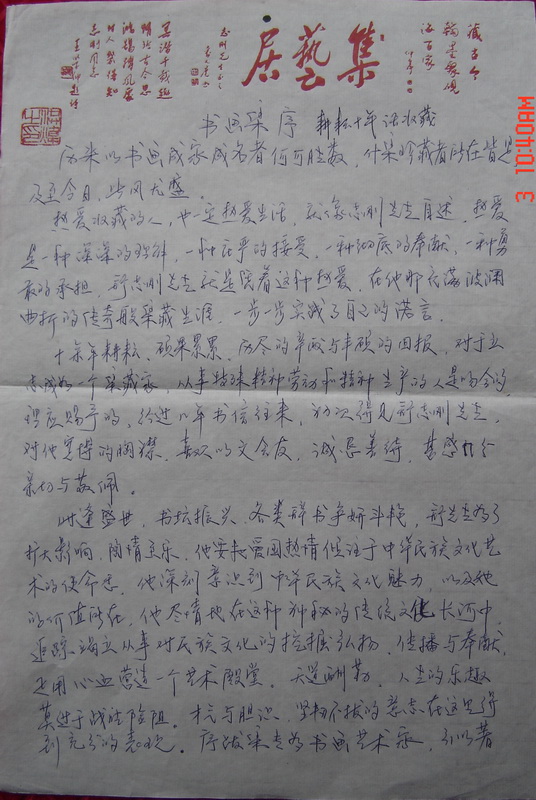 藏古今
翰墨家观
海百家
居艺集
书画集序 耕耘十年话收藏
历来以书画成家成名者何可胜数，什袭珍藏者所在皆是
及至今日，此风尤盛。
热爱收藏的人，也一定热爱生活，就像志刚先生自述，热爱
是一种深深的理解，一种庄严的接受，一种彻底的奉献，一种勇
敢的承担，舒志刚先生就是随着这种热爱，在他那充满波澜
曲折的传奇般集藏生涯，一步一步实践了自己的诺言。
十余年耕耘，硕果累累，历尽的辛酸与丰硕的回报，对于立
志成为一个集藏家，从事特殊精神劳动和精神生产的人是吻合的，
理应赐予的，经过几年书信往来，初次得见舒志刚先生，
对他宽博的胸襟，喜欢以文会友，诚恳善待，甚感十分
亲切与敬佩。
时逢盛世，书坛振兴，各类辞书争妍斗艳，舒先生为了
扩大影响，陶情至乐，他要把爱国热情倾注于中华民族文化艺
术的使命感，他深刻意识到中华民族文化魅力，以及她
的价值所在，他尽情地在这种神秘的传统文化长河中
追踪，独立从事对民族文化的挖掘弘扬，传播与奉献，
是用心血营造一个艺术殿堂。天道酬勤，人生的乐趣
莫过于战胜险阻。才气与胆识，坚韧不拔的意志在这里得
到充分的表现。序跋集专为书画艺术家，引以著
3 10:40AM